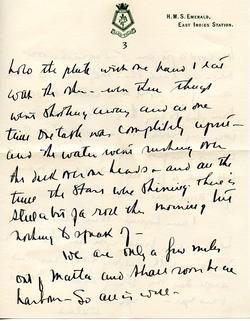 H.M.S. EMERALD,
EAST INDIES STATION.
3
hold the plate with one hand & eat
with the other – when then things
went shooting away and at one
time one table was completely upset –
and the water went rushing over
the deck over our heads – and all the
time the stars were shining. There is
still a bit of a roll this morning but
nothing to speak of –
We are only a few miles
out of Malta and shall soon be in
harbour – So all is well –